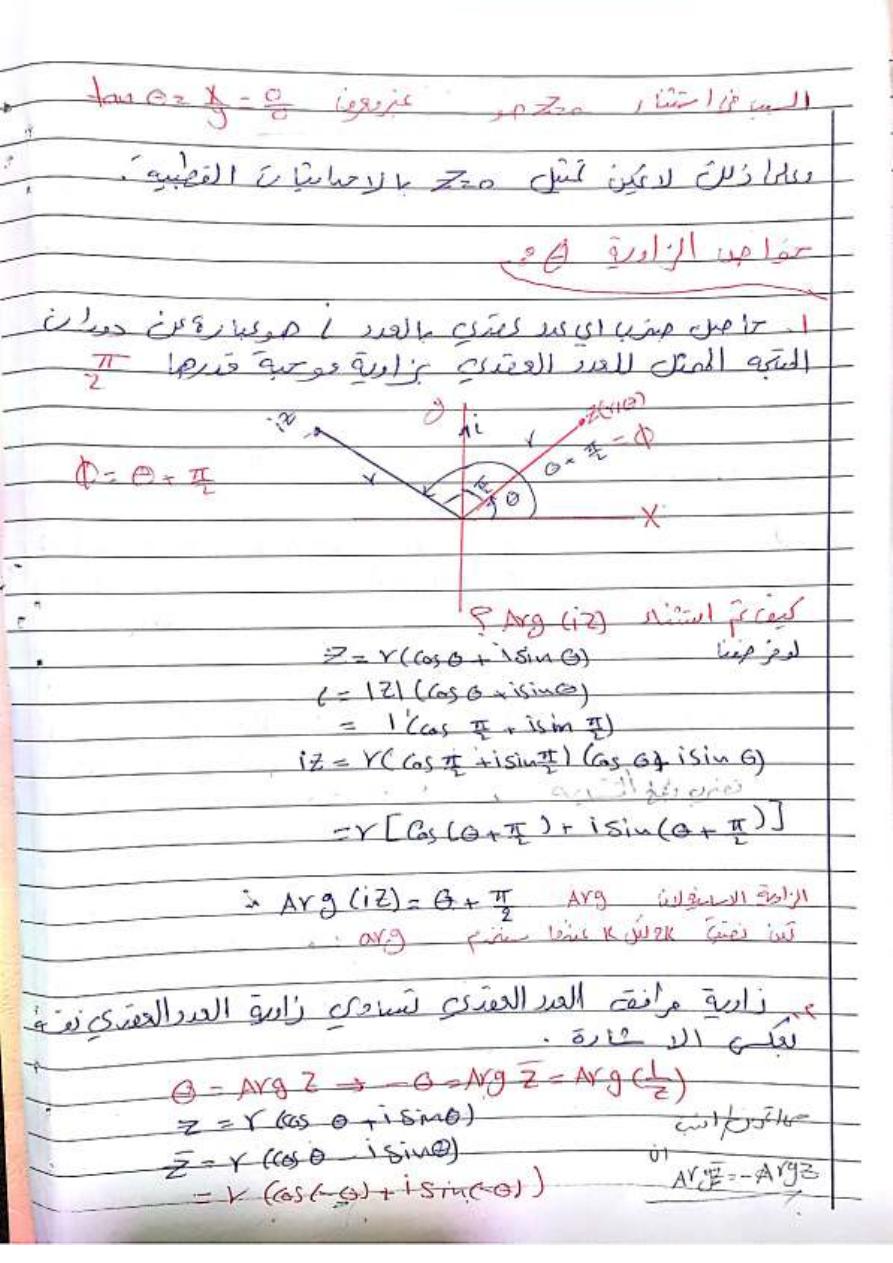 السبب في استثناء z=0 هو غير معرف tan θ = x/y = 0/0
وعلى ذلك لا يمكن تمثيل z=0 بالاحداثيات القطبية.
خواص الزاوية θ:
1. حاصل ضرب اي عدد عقدي بالعدد i هو عبارة عن دوران
المتجه الممثل للعدد العقدي بزاوية موجبة قدرها π/2
y
i
z(r,θ)
iz
r
r
θ + π/2 = Φ
Φ = θ + π/2
π/2
θ
X
كيف تم استثناء Arg (iz) ؟
لو فرضنا
Z = r(cosθ + isinθ)
i = |z| (cosθ + isinθ)
= 1 (cos π/2 + isin π/2)
iz = r(cos π/2 + isin π/2) (cosθ + isinθ)
نضرب
= r[cos(θ + π/2) + isin(θ + π/2)]
∴ Arg (iz) = θ + π/2
الزاوية الاساسية Arg
لكل k عندما نستخدم arg
2. زاوية مرافق العدد العقدي تساوي زاوية العدد العقدي نفسه
بعكس الاشارة.
θ = Arg Z → -θ = Arg z̅ = Arg (1/z)
z = r (cos θ + isinθ)
z̅ = r (cosθ - isinθ)
= r (cos(-θ) + isin(-θ))
ان
Arg z̅ = -Arg z